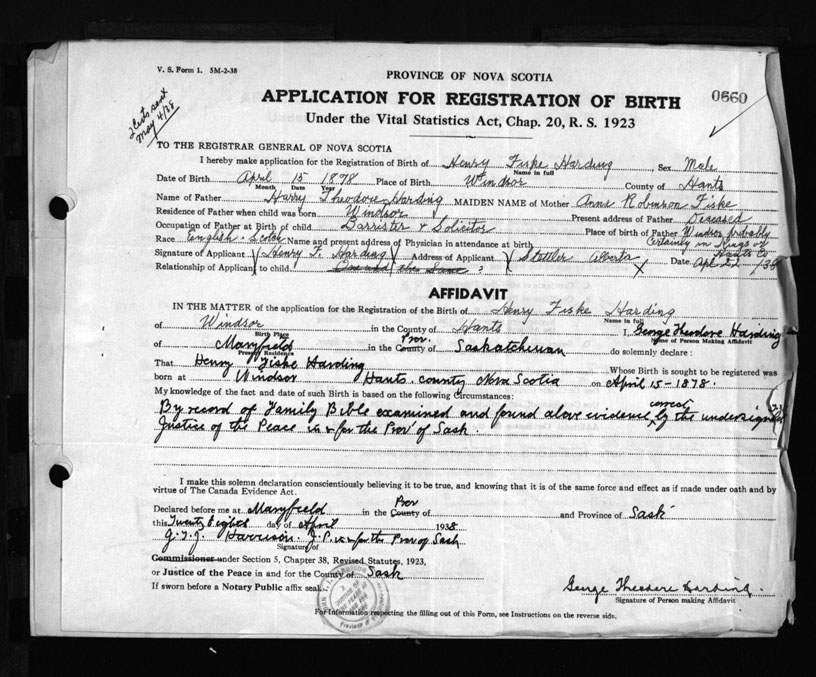 V. S. Form 1. 5M-2-38
PROVINCE OF NOVA SCOTIA
APPLICATION FOR REGISTRATION OF BIRTH
0660
Under the Vital Statistics Act, Chap. 20, R. S. 1923
May 4/38
TO THE REGISTRAR GENERAL OF NOVA SCOTIA
I hereby make application for the Registration of Birth of Henry Fiske Harding Sex Male
Name in full
Date of Birth April 15 1878 Place of Birth Windsor County of Hants
Month Date Year
Name of Father Harry Theodore Harding MAIDEN NAME of Mother Anna Robinson Fiske
Residence of Father when child was born Windsor Present address of Father Deceased
Occupation of Father at Birth of child Barrister & Solicitor Place of birth of Father Windsor probably
Race English-Scotch Name and present address of Physician in attendance at birth Certainly in Kings or
Hants Co
Signature of Applicant Henry F. Harding Address of Applicant Stettler Alberta Date Apl 22 /38
Relationship of Applicant to child One and the Same
AFFIDAVIT
IN THE MATTER of the application for the Registration of the Birth of Henry Fiske Harding
Name in full
of Windsor in the County of Hants I, George Theodore Harding
Birth Place Name of Person Making Affidavit
of Maryfield in the County of Prov. Saskatchewan do solemnly declare:
Present Residence
That Henry Fiske Harding Whose Birth is sought to be registered was
born at Windsor Hants County Nova Scotia on April 15-1878.
My knowledge of the fact and date of such Birth is based on the following Circumstances:
By record of Family Bible examined and found above evidence correct by the undersigned
Justice of the Peace in & for the Prov of Sask.
I make this solemn declaration conscientiously believing it to be true, and knowing that it is of the same force and effect as if made under oath and by
virtue of The Canada Evidence Act.
Declared before me at Maryfield in the County of Prov and Province of Sask
this Twenty Eighth day of April 1938
Harrison. J.P. in & for the Prov of Sask
Signature of
Commissioner under Section 5, Chapter 38, Revised Statutes, 1923,
or Justice of the Peace in and for the County of Sask
If sworn before a Notary Public affix seal
George Theodore Harding
Signature of Person making Affidavit
For Information respecting the filling out of this Form, see Instructions on the reverse side.